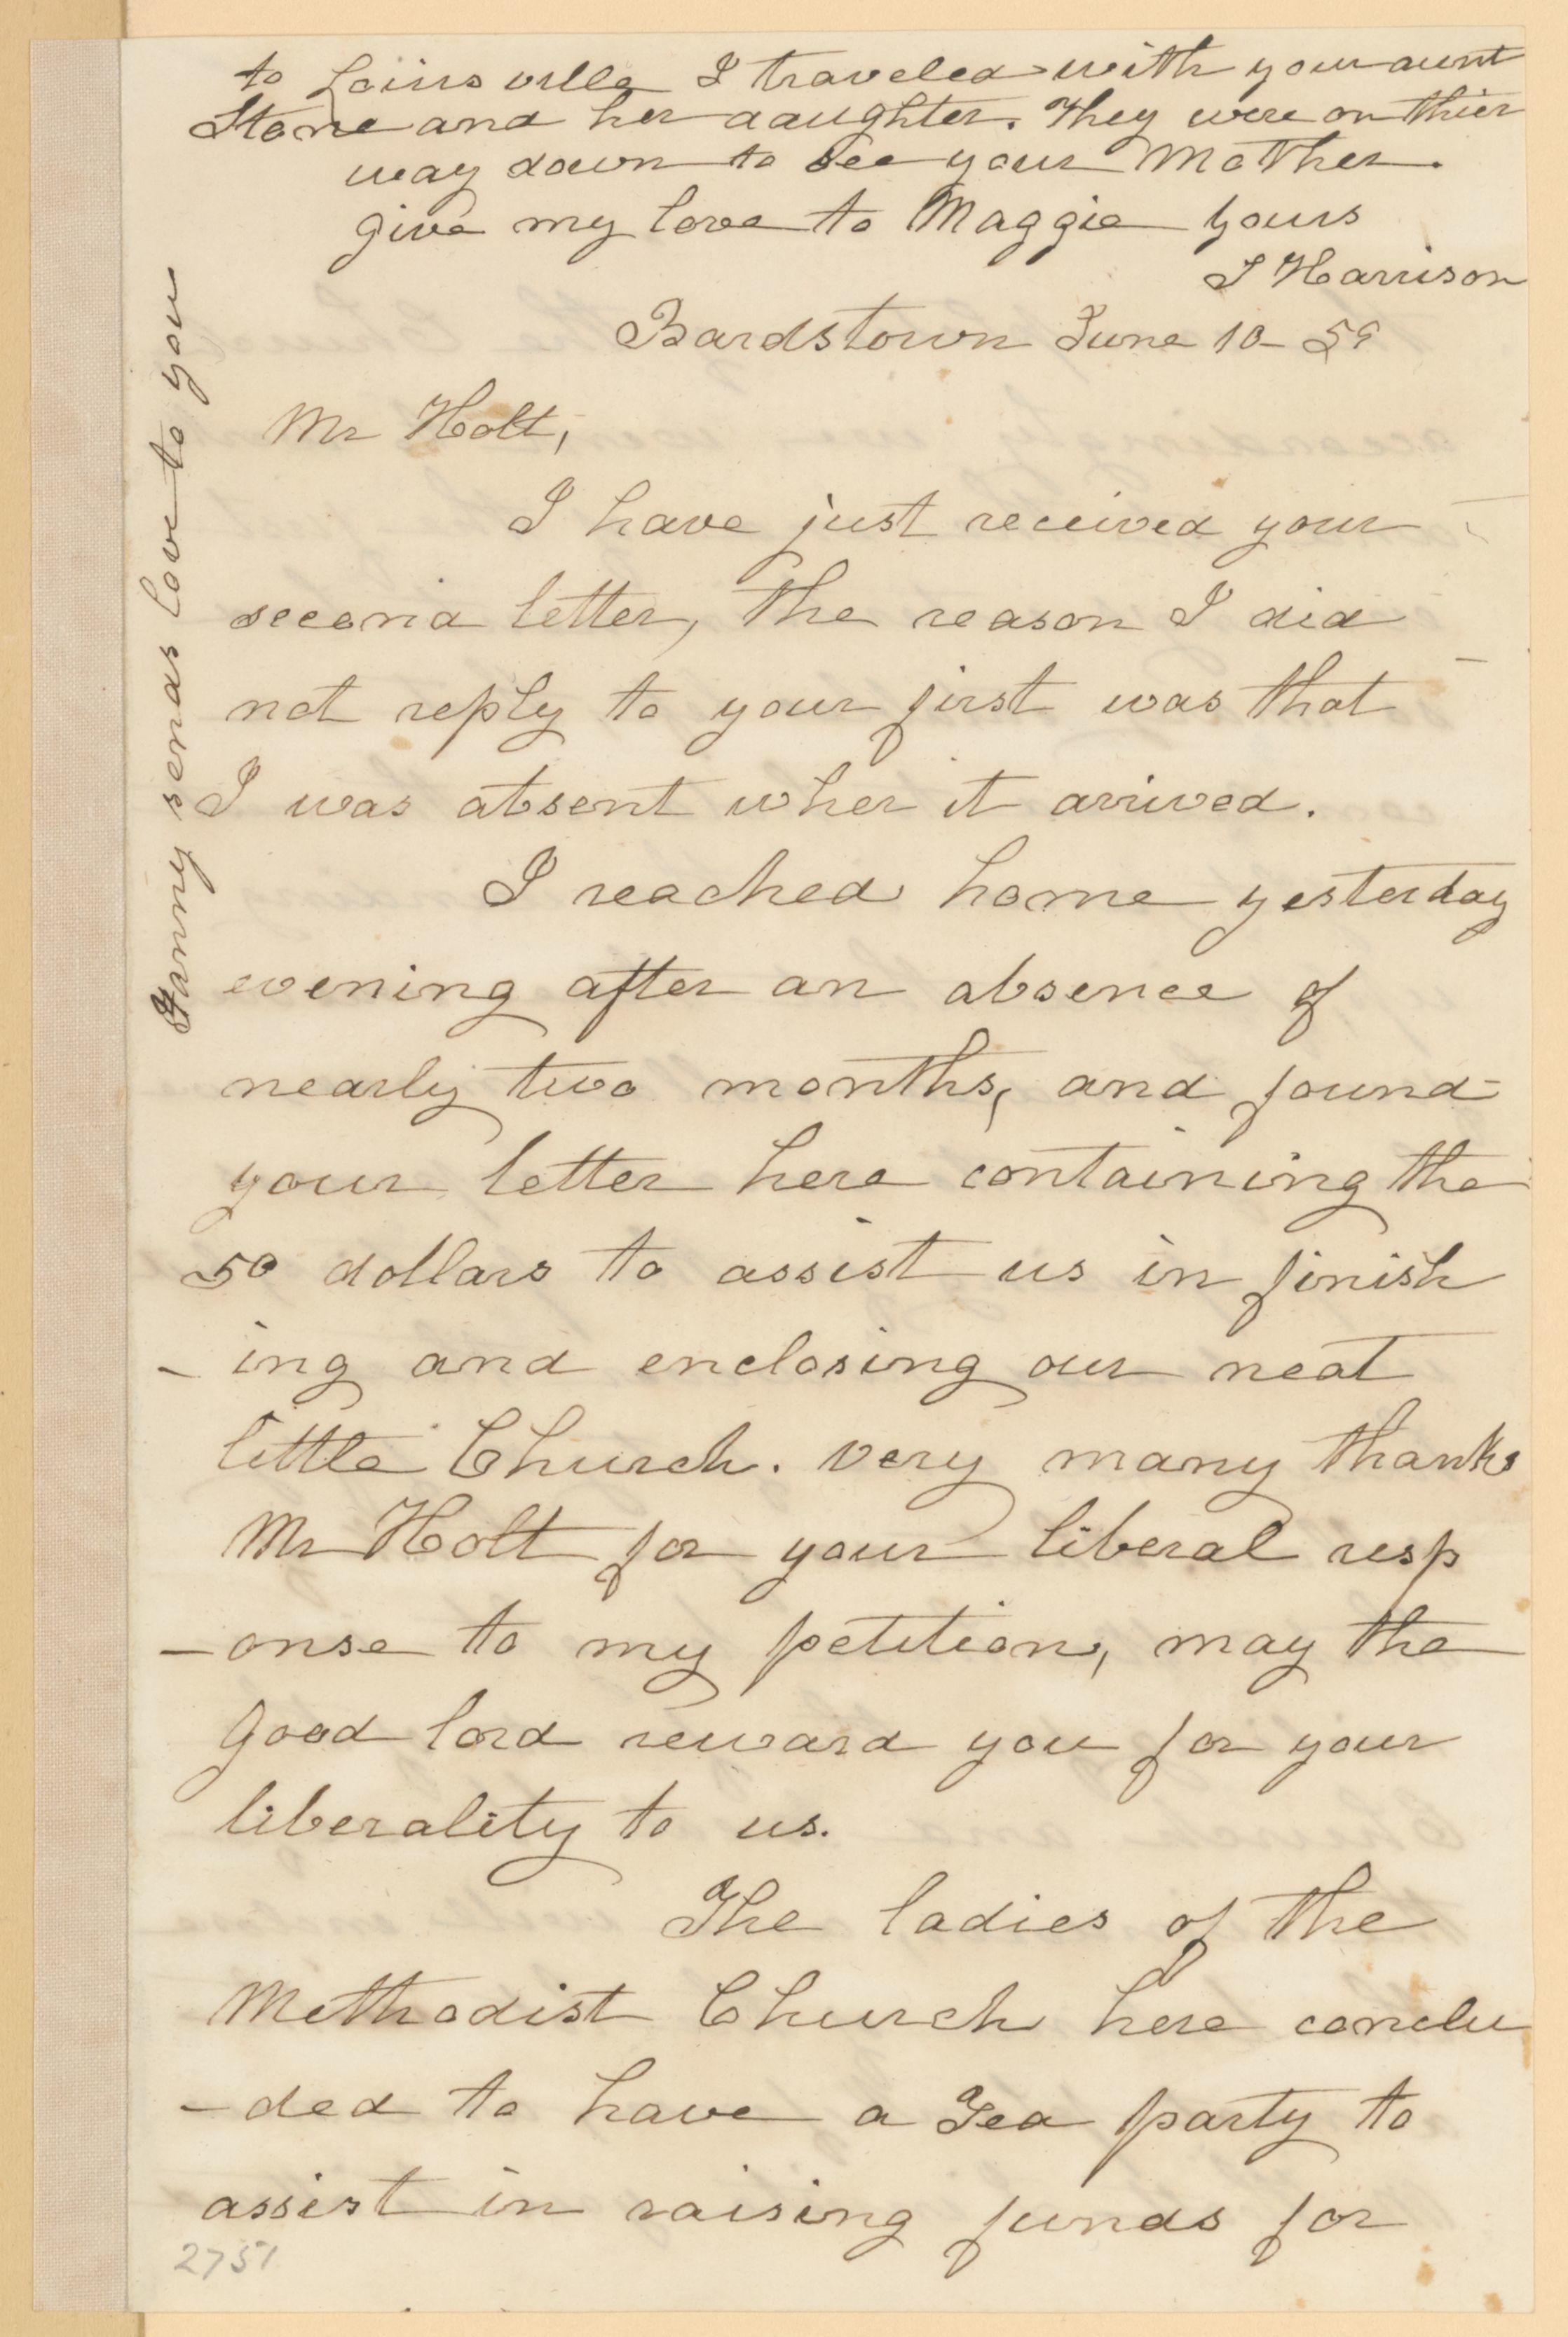 to Loiusville I traveled with your aunt
Stone and her daughter. They were on thier
way down to see your Mother.
give my love to Maggie Yours
J Harrison
Bardstown June 10 - 59
Mr Holt,
I have just received your
second letter, the reason I did
not reply to your first was that
I was absent when it arrived.
I reached home yesterday
evening after an absence of
nearly two months, and found
your letter here containing the
50 dollars to assist us in finish
- ing and enclosing our neat
little Church. very many thanks
Mr Holt for your liberal resp
- onse to my petition, may the
good lord reward you for your
liberality to us.
The ladies of the
Methodist Church here conclu
- ded to have a Tea party to
assist in raising funds for
2751
Fanny sends love to you